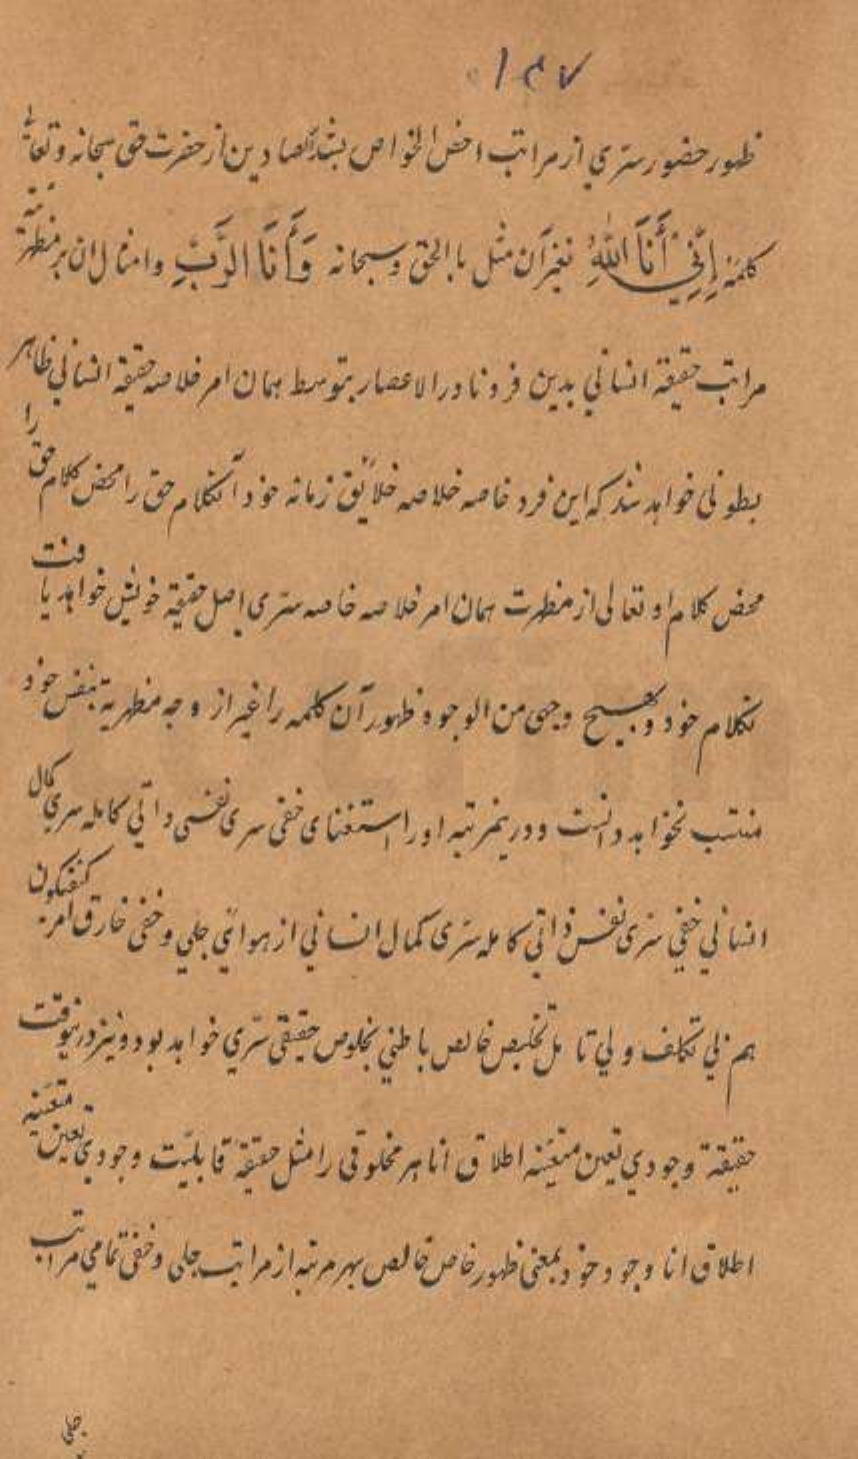 ۱۴۷
ظهور حضور سری از مراتب اخص الخواص بشد الصادین از حضرت حق سبحانه و تعالی
کلمهٔ إِنِّي أَنَا اللَّهُ نغیر آن مثل با الحق و سبحانه وَأَنَا الرَّبُّ و امثال ان بر مظهریة
مراتب حقیقة انسانی بدین فرد نادر الاعصار بتوسط همان امر خلاصه حقیقة انسانی ظاهر
بطونی خواهد شد که این فرد خاصه خلاصه خلایق زمانه خود آنکلام حق را محض کلام حق را
محض کلام او تعالی از مظهرت همان امر خلاصه خاصه سری اصل حقیقة خویش خواهد یافت
نکلام خود و بهیچ وجهی من الوجوه ظهور آن کلمه را غیر از وجه مظهریة بنفس خود
منتسب نخواهد دانست و درینمرتبه او را استغنای خفی سری نفسی ذاتی کامله سری کمال
انسانی خفی سری نفس ذاتی کامله سری کمال انسانی از هوائی جلی و خفی خارق امر کنفیکون
هم بی تکلف و بی تامل تخلیص خالص باطنی بخلوص حقیقی سری خواهد بود و نیز درینوقت
حقیقة وجودی تعین متعینه اطلاق انا هر مخلوقی را مثل حقیقة قابلیت وجودی تعین متعینه
اطلاق انا وجود خود بمعنی ظهور خاص خالص بهر مرتبه از مراتب جلی و خفی تمامی مراتب
جلی